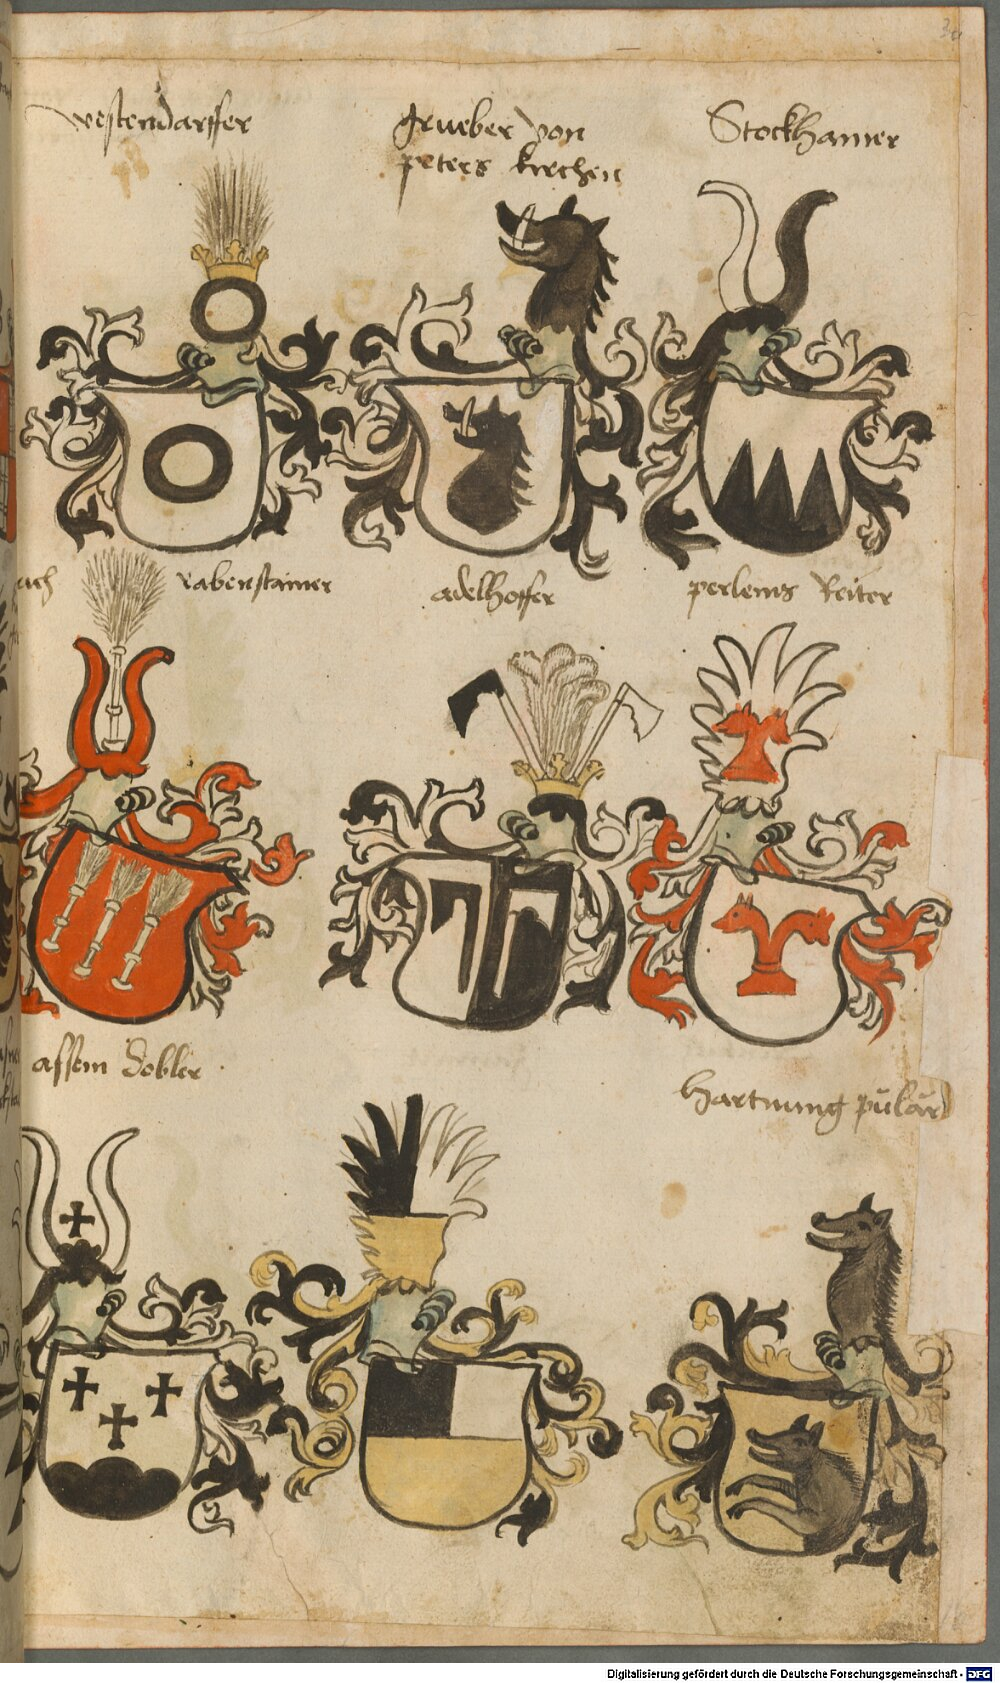 westendarffer
grueber von
peters kirchen
Stockhamer
rabenstainer
adelhoffer
Reiter
assem Dobler
Hartnung
Digitalisierung gefördert durch die Deutsche Forschungsgemeinschaft - DFG